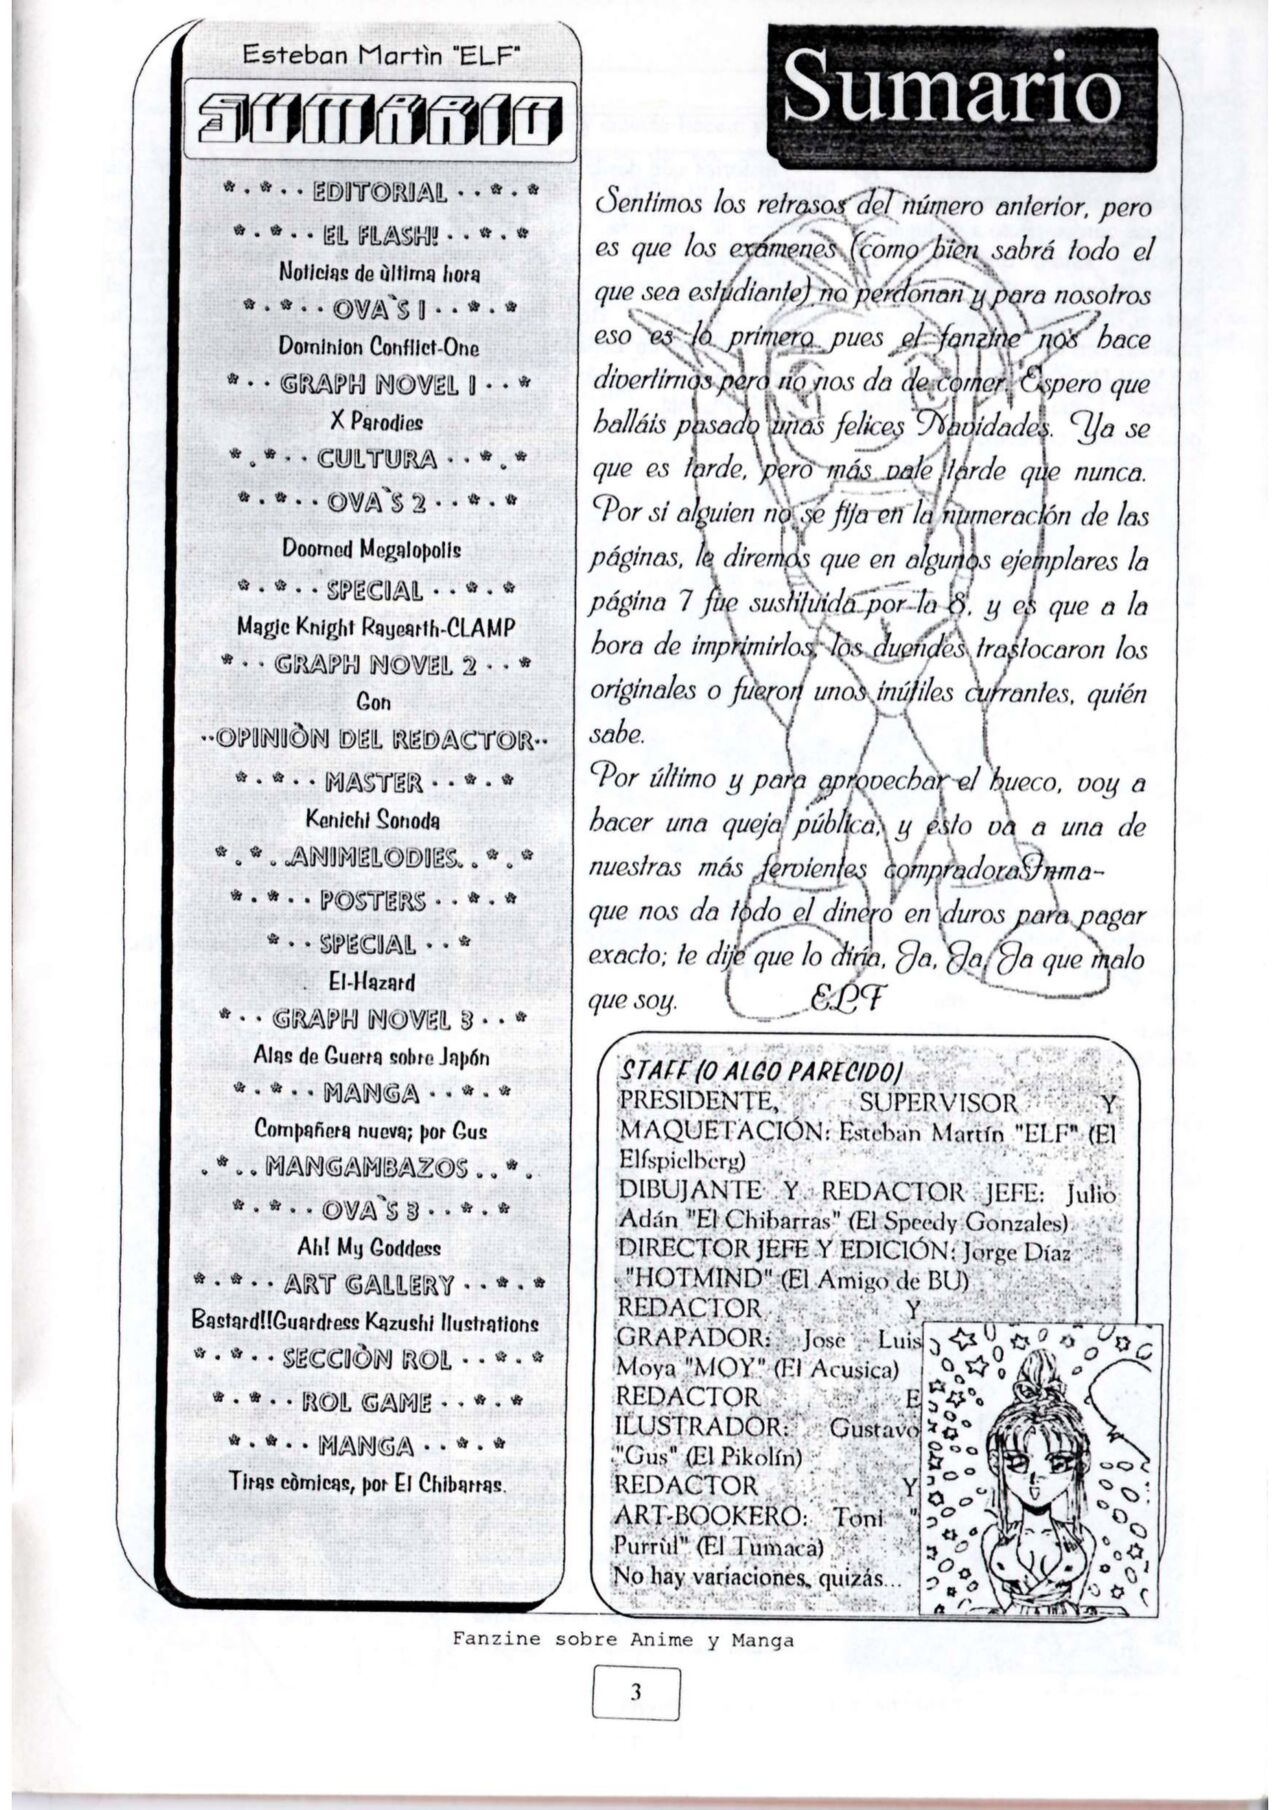 Esteban Martìn "ELF"
SUMARIO
*.*.. EDITORIAL ..*.*
*.*.. EL FLASH! ..*.*
Noticias de ùltima hora
*.*.. OVA`S 1 ..*.*
Dominion Conflict-One
*.. GRAPH NOVEL 1 ..*
X Parodies
*.*.. CULTURA ..*.*
*.*.. OVA`S 2 ..*.*
Doomed Megalopolis
*.*.. SPECIAL ..*.*
Magic Knight Rayearth-CLAMP
*.. GRAPH NOVEL 2 ..*
Gon
..OPINIÒN DEL REDACTOR..
*.*.. MASTER ..*.*
Kenichi Sonoda
*.*..ANIMELODIES..*.*
*.*.. POSTERS ..*.*
*.. SPECIAL ..*
El-Hazard
*.. GRAPH NOVEL 3 ..*
Alas de Guerra sobre Japón
*.*.. MANGA ..*.*
Compañera nueva; por Gus
.*.. MANGAMBAZOS ..*.
*.*.. OVA`S 3 ..*.*
Ah! My Goddess
*.*.. ART GALLERY ..*.*
Bastard!!Guardress Kazushi Ilustrations
*.*.. SECCIÒN ROL ..*.*
*.*.. ROL GAME ..*.*
*.*.. MANGA ..*.*
Tiras còmicas, por El Chibarras.
Sumario
Sentimos los retrasos del número anterior, pero
es que los exámenes (como bien sabrá todo el
que sea estudiante) no perdonan y para nosotros
eso es lo primero pues el fanzine nos hace
divertirnos pero no nos da de comer. Espero que
halláis pasado unas felices Navidades. Ya se
que es tarde, pero más vale tarde que nunca.
Por si alguien no se fija en la numeración de las
páginas, le diremos que en algunos ejemplares la
página 7 fue sustituida por la 8, y es que a la
hora de imprimirlos, los duendes trastocaron los
originales o fueron unos inútiles currantes, quién
sabe.
Por último y para aprovechar el hueco, voy a
hacer una queja pública, y esto va a una de
nuestras más fervientes compradoras Inma-
que nos da todo el dinero en duros para pagar
exacto; te dije que lo diría, Ja, Ja, Ja que malo
que soy. ELF
STAFF (O ALGO PARECIDO)
PRESIDENTE, SUPERVISOR Y
MAQUETACIÓN: Esteban Martín "ELF" (El
Elfspielberg)
DIBUJANTE Y REDACTOR JEFE: Julio
Adán "El Chibarras" (El Speedy Gonzales)
DIRECTOR JEFE Y EDICIÓN: Jorge Díaz
"HOTMIND" (El Amigo de BU)
REDACTOR Y
GRAPADOR: Jose Luis
Moya "MOY" (El Acusica)
REDACTOR E
ILUSTRADOR: Gustavo
"Gus" (El Pikolín)
REDACTOR Y
ART-BOOKERO: Toni "
Purrùl" (El Tumaca)
No hay variaciones, quizás...
Fanzine sobre Anime y Manga
3